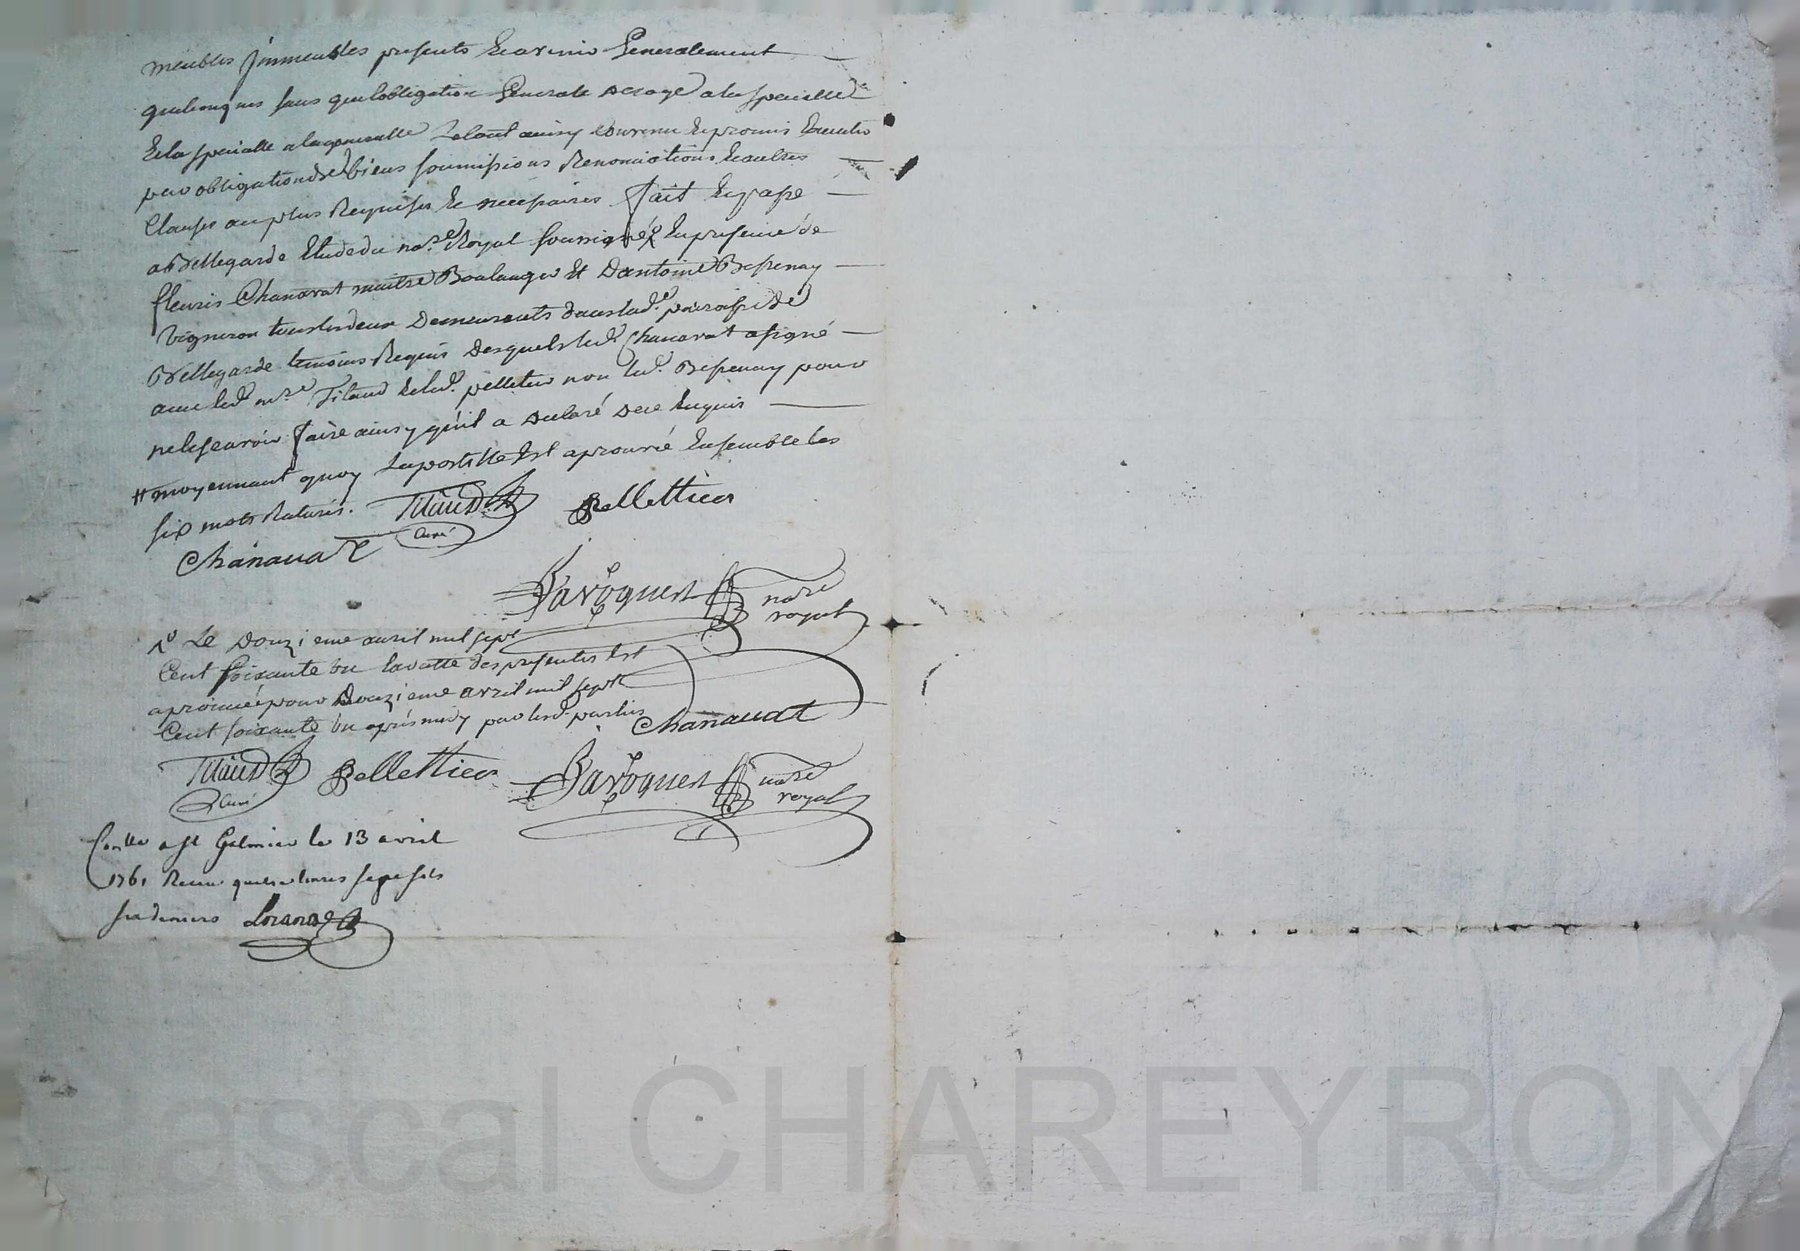 meubles jmmeubles presents Eavenir Generalement
quelconques sans que lobligation Generale deroge a la specialle
Et la specialle a la generalle Le tout ainsy Convenu Et promis Executer
par obligation de biens soumissions Renonciations Et aultres
Clauses au plus Requises Et necessaires fait Et passé
a Bellegarde Etude du no.re Royal soussigné En presence de
fleuris Chanavat maitre Boulanger Et Dantoine Bessenay
Vigneron tous les deux Demeurants dans lad.e paroisse de
Bellegarde temoins Requis Desquels led. Chanavat a signé
avec led. m.re Titaud Et led. pelletier non led. Bessenay pour
ne le scavoir faire ainsy qu'il a Declaré de ce Enquis
# moyennant quoy Lapostille Est aprouvée Ensemble les
six mots Raturés. Titaud Pellettier
Curé
Chanavat
Bavoquest no.re
royal
Le Douzieme avril mil sept
Cent soixante un la datte des presentes Est
aprouvée pour Douzieme avril mil sept
Cent soixante un après midy par lesd. parties Chanavat
Titaud Pellettier Bavoquest no.re
Curé royal
Con.lle a St Galmier le 13 avril
1761 Recu quatre livres sept sols
six deniers
Pascal CHAREYRON